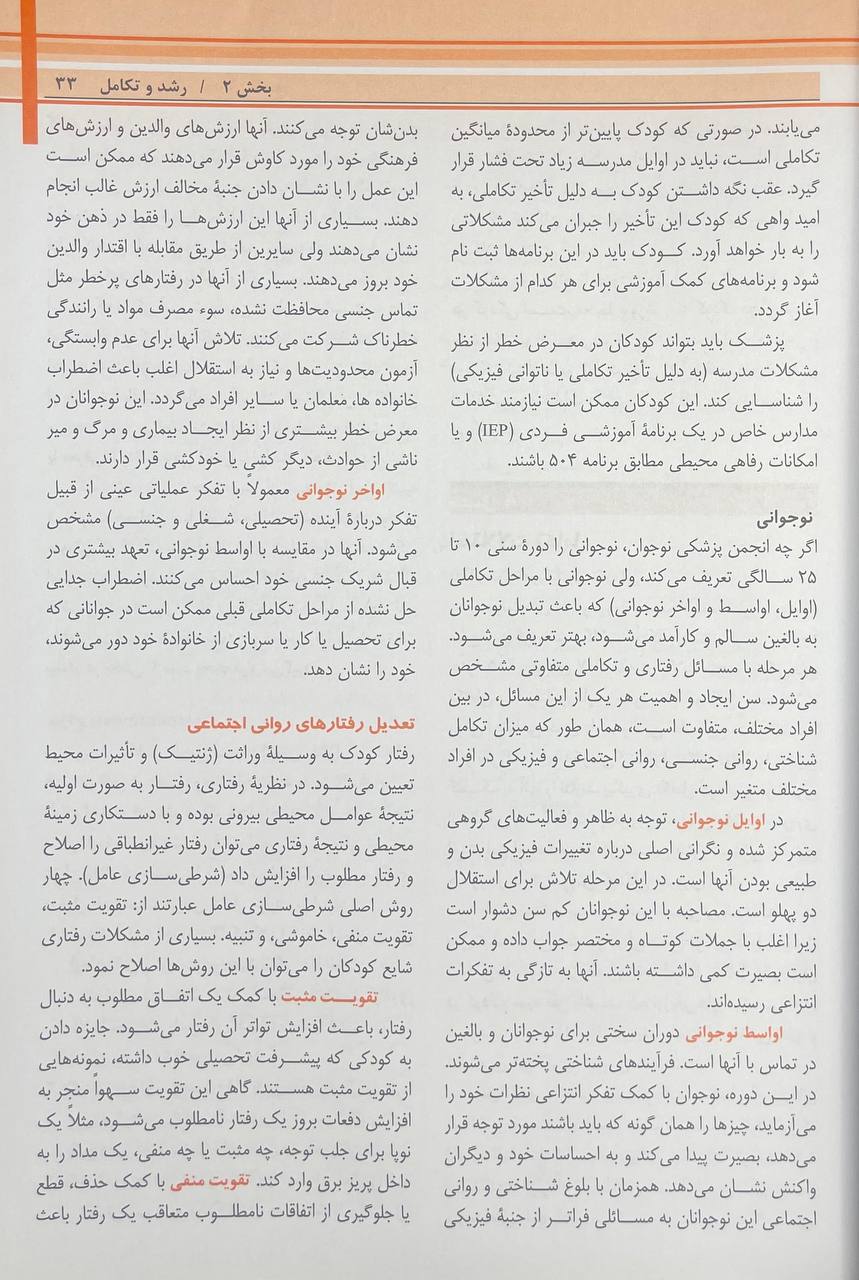 بخش ۲ / رشد و تکامل ۳۳
می‌یابند. در صورتی که کودک پایین‌تر از محدودهٔ میانگین
تکاملی است، نباید در اوایل مدرسه زیاد تحت فشار قرار
گیرد. عقب نگه داشتن کودک به دلیل تأخیر تکاملی، به
امید واهی که کودک این تأخیر را جبران می‌کند مشکلاتی
را به بار خواهد آورد. کودک باید در این برنامه‌ها ثبت نام
شود و برنامه‌های کمک آموزشی برای هر کدام از مشکلات
آغاز گردد.
پزشک باید بتواند کودکان در معرض خطر از نظر
مشکلات مدرسه (به دلیل تأخیر تکاملی یا ناتوانی فیزیکی)
را شناسایی کند. این کودکان ممکن است نیازمند خدمات
مدارس خاص در یک برنامهٔ آموزشی فردی (IEP) و یا
امکانات رفاهی محیطی مطابق برنامه ۵۰۴ باشند.
نوجوانی
اگر چه انجمن پزشکی نوجوان، نوجوانی را دورهٔ سنی ۱۰ تا
۲۵ سالگی تعریف می‌کند، ولی نوجوانی با مراحل تکاملی
(اوایل، اواسط و اواخر نوجوانی) که باعث تبدیل نوجوانان
به بالغین سالم و کارآمد می‌شود، بهتر تعریف می‌شود.
هر مرحله با مسائل رفتاری و تکاملی متفاوتی مشخص
می‌شود. سن ایجاد و اهمیت هر یک از این مسائل، در بین
افراد مختلف، متفاوت است، همان طور که میزان تکامل
شناختی، روانی جنسی، روانی اجتماعی و فیزیکی در افراد
مختلف متغیر است.
در اوایل نوجوانی، توجه به ظاهر و فعالیت‌های گروهی
متمرکز شده و نگرانی اصلی درباره تغییرات فیزیکی بدن و
طبیعی بودن آنها است. در این مرحله تلاش برای استقلال
دو پهلو است. مصاحبه با این نوجوانان کم سن دشوار است
زیرا اغلب با جملات کوتاه و مختصر جواب داده و ممکن
است بصیرت کمی داشته باشند. آنها به تازگی به تفکرات
انتزاعی رسیده‌اند.
اواسط نوجوانی دوران سختی برای نوجوانان و بالغین
در تماس با آنها است. فرآیندهای شناختی پخته‌تر می‌شوند.
در این دوره، نوجوان با کمک تفکر انتزاعی نظرات خود را
می‌آزماید، چیزها را همان گونه که باید باشند مورد توجه قرار
می‌دهد، بصیرت پیدا می‌کند و به احساسات خود و دیگران
واکنش نشان می‌دهد. همزمان با بلوغ شناختی و روانی
اجتماعی این نوجوانان به مسائلی فراتر از جنبهٔ فیزیکی
بدن‌شان توجه می‌کنند. آنها ارزش‌های والدین و ارزش‌های
فرهنگی خود را مورد کاوش قرار می‌دهند که ممکن است
این عمل را با نشان دادن جنبهٔ مخالف ارزش غالب انجام
دهند. بسیاری از آنها این ارزش‌ها را فقط در ذهن خود
نشان می‌دهند ولی سایرین از طریق مقابله با اقتدار والدین
خود بروز می‌دهند. بسیاری از آنها در رفتارهای پرخطر مثل
تماس جنسی محافظت نشده، سوء مصرف مواد یا رانندگی
خطرناک شرکت می‌کنند. تلاش آنها برای عدم وابستگی،
آزمون محدودیت‌ها و نیاز به استقلال اغلب باعث اضطراب
خانواده ها، معلمان یا سایر افراد می‌گردد. این نوجوانان در
معرض خطر بیشتری از نظر ایجاد بیماری و مرگ و میر
ناشی از حوادث، دیگر کشی یا خودکشی قرار دارند.
اواخر نوجوانی معمولاً با تفکر عملیاتی عینی از قبیل
تفکر دربارهٔ آینده (تحصیلی، شغلی و جنسی) مشخص
می‌شود. آنها در مقایسه با اواسط نوجوانی، تعهد بیشتری در
قبال شریک جنسی خود احساس می‌کنند. اضطراب جدایی
حل نشده از مراحل تکاملی قبلی ممکن است در جوانانی که
برای تحصیل یا کار یا سربازی از خانوادهٔ خود دور می‌شوند،
خود را نشان دهد.
تعدیل رفتارهای روانی اجتماعی
رفتار کودک به وسیلهٔ وراثت (ژنتیک) و تأثیرات محیط
تعیین می‌شود. در نظریهٔ رفتاری، رفتار به صورت اولیه،
نتیجهٔ عوامل محیطی بیرونی بوده و با دستکاری زمینهٔ
محیطی و نتیجهٔ رفتاری می‌توان رفتار غیرانطباقی را اصلاح
و رفتار مطلوب را افزایش داد (شرطی‌سازی عامل). چهار
روش اصلی شرطی‌سازی عامل عبارتند از: تقویت مثبت،
تقویت منفی، خاموشی، و تنبیه. بسیاری از مشکلات رفتاری
شایع کودکان را می‌توان با این روش‌ها اصلاح نمود.
تقویت مثبت با کمک یک اتفاق مطلوب به دنبال
رفتار، باعث افزایش تواتر آن رفتار می‌شود. جایزه دادن
به کودکی که پیشرفت تحصیلی خوب داشته، نمونه‌هایی
از تقویت مثبت هستند. گاهی این تقویت سهواً منجر به
افزایش دفعات بروز یک رفتار نامطلوب می‌شود، مثلاً یک
نوپا برای جلب توجه، چه مثبت یا چه منفی، یک مداد را به
داخل پریز برق وارد کند. تقویت منفی با کمک حذف، قطع
یا جلوگیری از اتفاقات نامطلوب متعاقب یک رفتار باعث